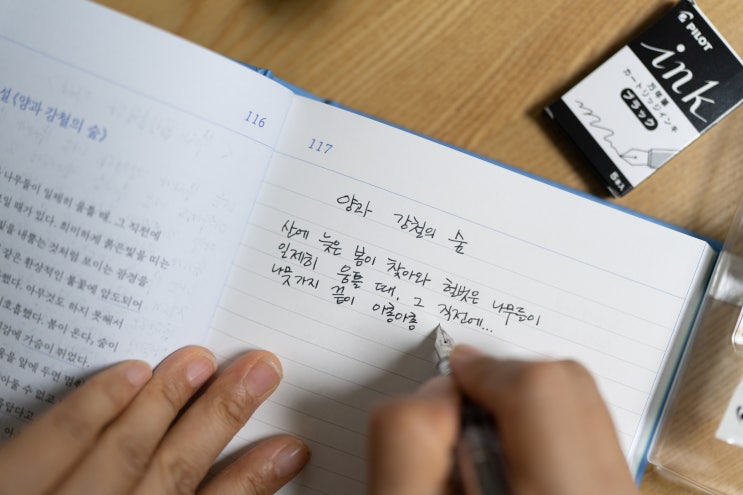 설 《양과 강철의 숲》
116
나무들이 일제히 움틀 때, 그 직전에
일 때가 있다. 희미하게 붉은빛을 띠는
빛을 내뿜는 것처럼 보이는 광경을
같은 환상적인 불꽃에 압도되어
했다. 아무것도 하지 못해서
호흡했다. 봄이 온다, 숲이
감에 가슴이 뛰었다.
앞에 두면
수 없고
117
양과 강철의 숲
산에 늦은 봄이 찾아와 헐벗은 나무들이
일제히 움틀 때, 그 직전에...
나뭇가지 끝이 아롱아롱
PILOT
ink
万年筆
カートリッジインキ
ブラック
5本入